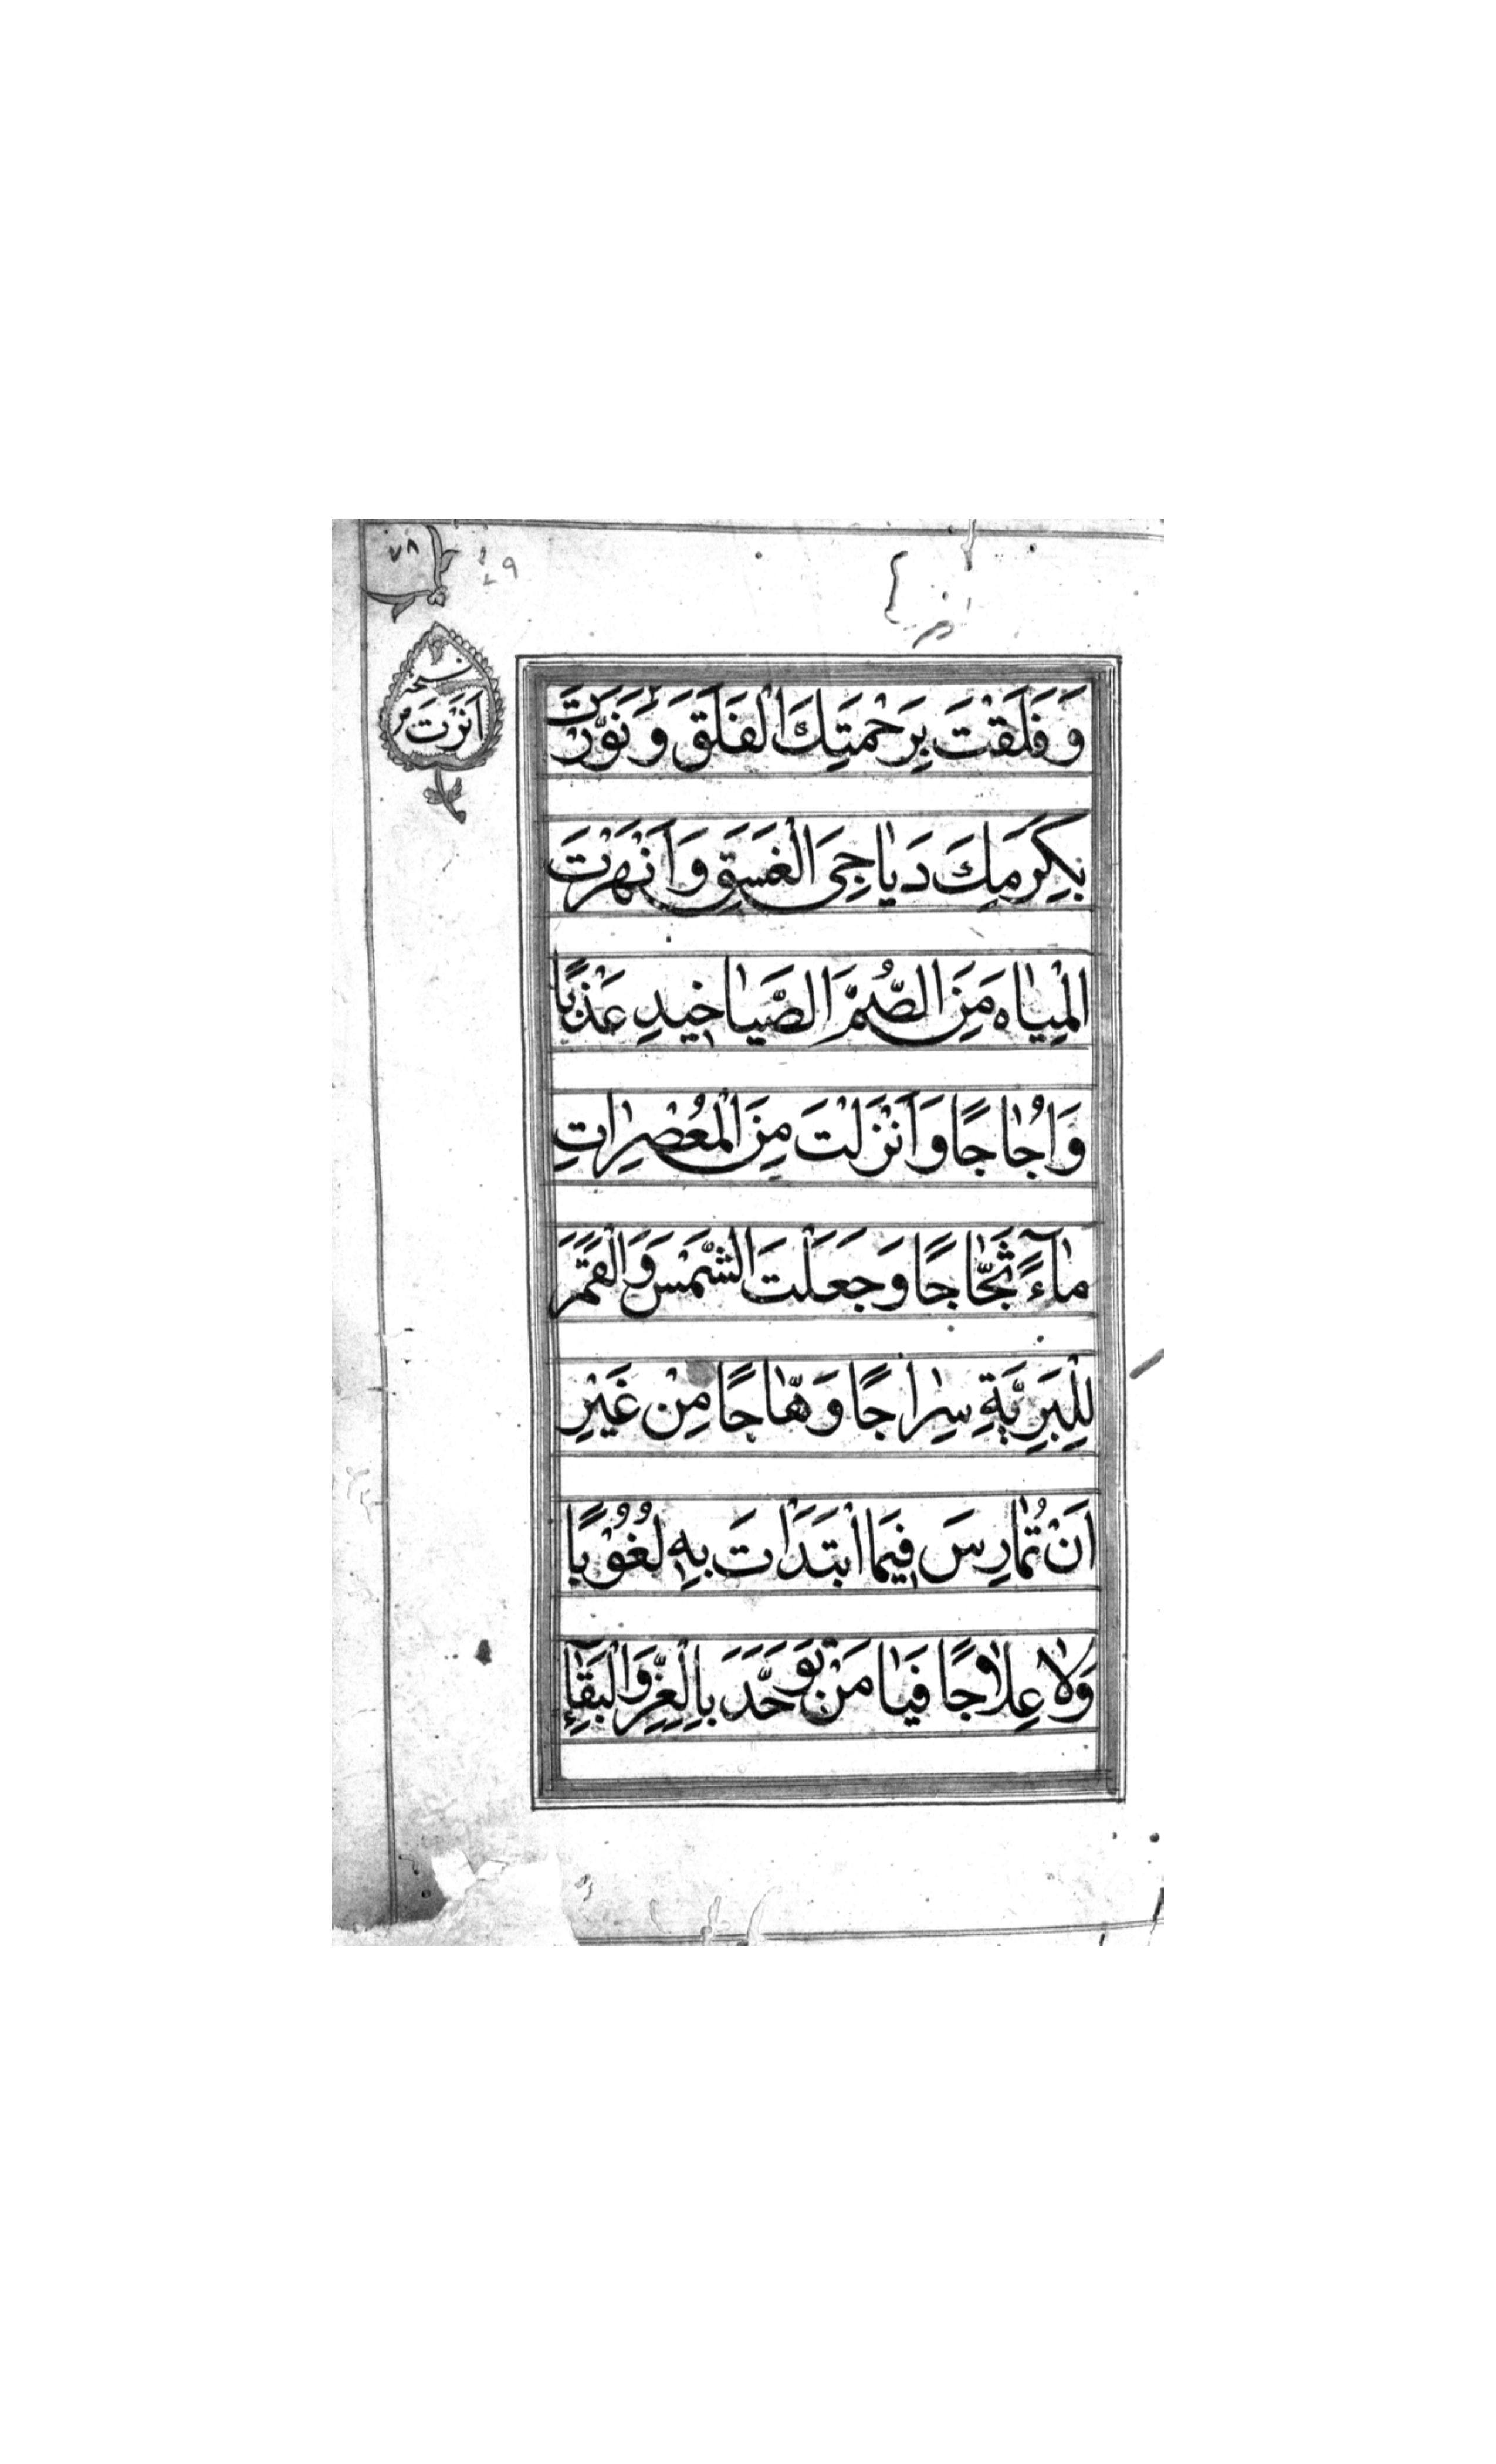 ٧٨
٧٩
نسخه
اَنَرْتَ
وَفَلَقْتَ بِرَحْمَتِكَ الْفَلَقَ وَنَوَّرْتَ
بِكَرَمِكَ دَيٰاجِىَ الْغَسَقِ وَاَنْهَرْتَ
الْمِيٰاهَ مِنَ الصُّمِّ الصَّيٰاخٖيدِ عَذْبًا
وَاُجٰاجًا وَاَنْزَلْتَ مِنَ الْمُعْصِرٰاتِ
مٰآءً ثَجّٰاجًا وَجَعَلْتَ الشَّمْسَ وَالْقَمَرَ
لِلْبَرِيَّةِ سِرٰاجًا وَهّٰاجًا مِنْ غَيْرِ
اَنْ تُمٰارِسَ فٖيمَا ابْتَدَاْتَ بِهٖ لُغُوْبًا
وَلٰا عِلٰاجًا فَيٰا مَنْ تَوَحَّدَ بِالْعِزِّ وَالْبَقٰآءِ